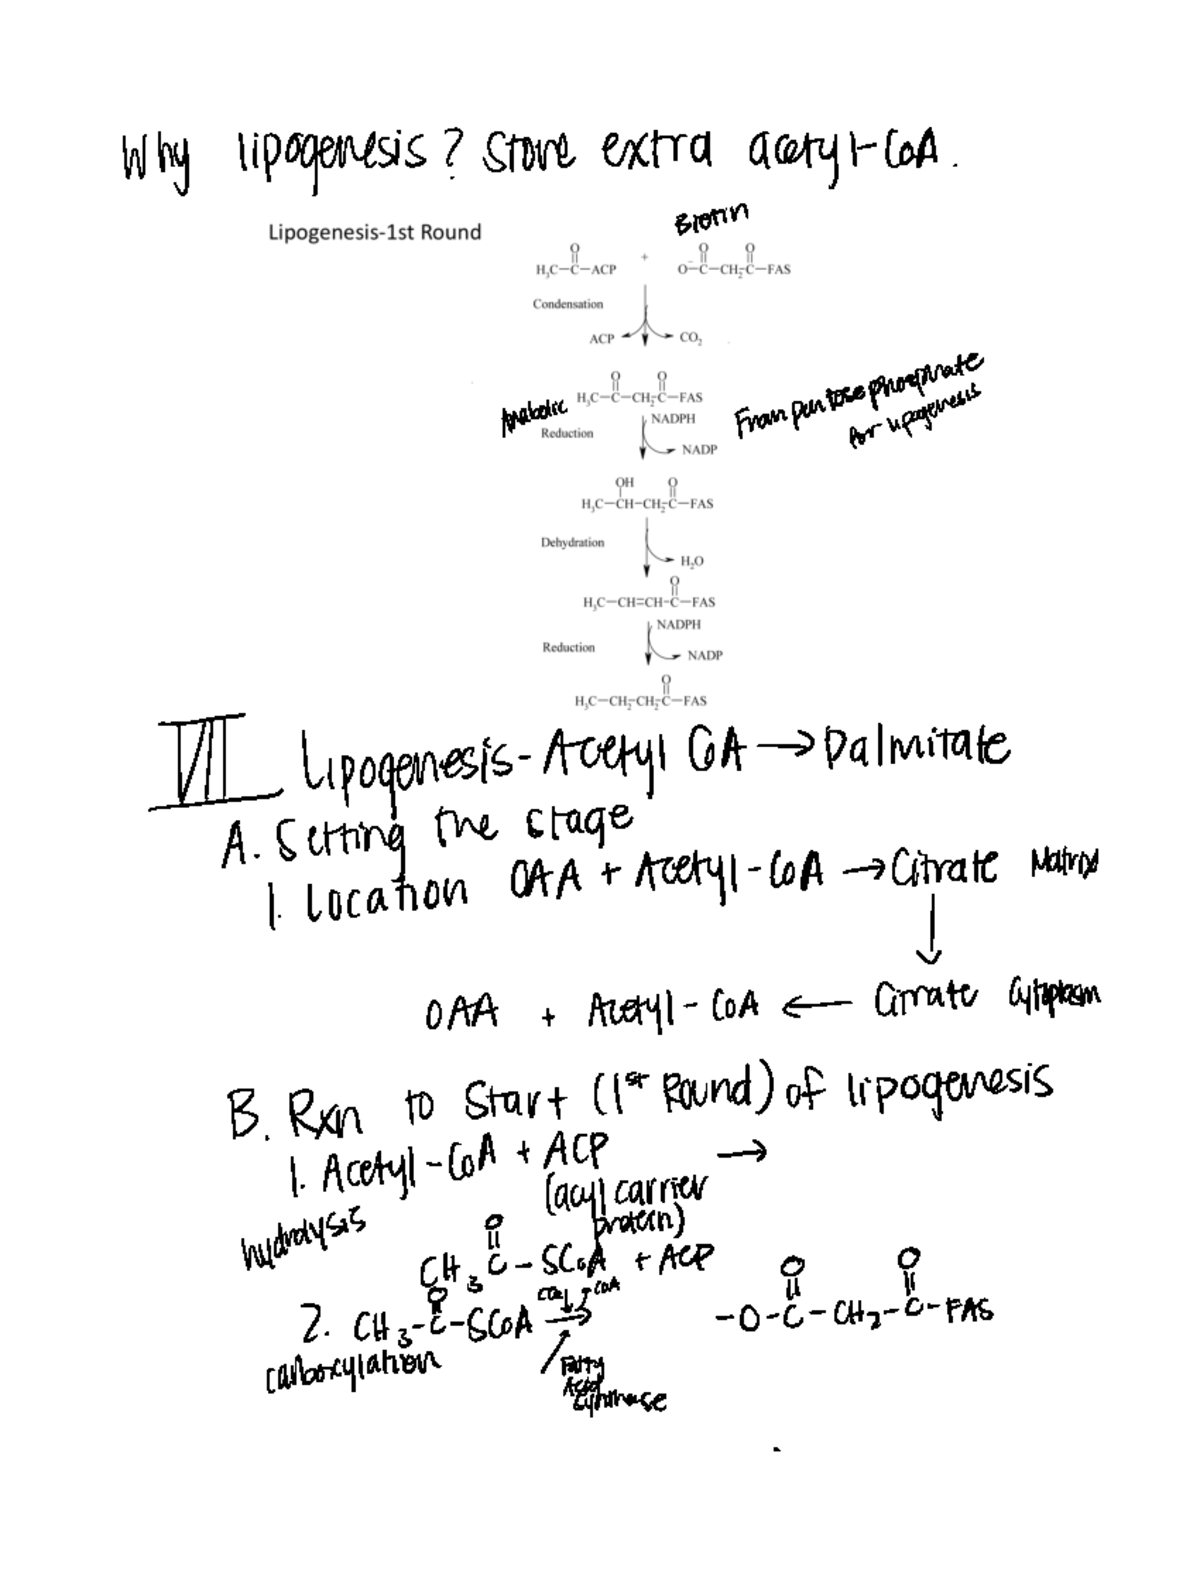 Why lipogenesis? Store extra acetyl-CoA.
Lipogenesis-1st Round
Biotin
O O O
H₃C–C–ACP + O⁻–C–CH₂–C–FAS
Condensation
ACP CO₂
O O
Anabolic H₃C–C–CH₂–C–FAS
From pentose phosphate
for lipogenesis
NADPH
Reduction
NADP
OH O
H₃C–CH–CH₂–C–FAS
Dehydration
H₂O
O
H₃C–CH=CH–C–FAS
NADPH
Reduction
NADP
O
H₃C–CH₂–CH₂–C–FAS
VII Lipogenesis - Acetyl CoA → Palmitate
A. Setting the stage
1. Location OAA + Acetyl-CoA → Citrate Matrix
↓
OAA + Acetyl-CoA ← Citrate Cytoplasm
B. Rxn to Start (1st Round) of lipogenesis
1. Acetyl-CoA + ACP →
(acyl carrier
protein)
hydrolysis
O
CH₃C – SCoA + ACP
O O O
2. CH₃-C-SCoA → -O-C-CH₂-C-FAS
CO₂ CoA
carboxylation
Fatty
Acid
Synthase